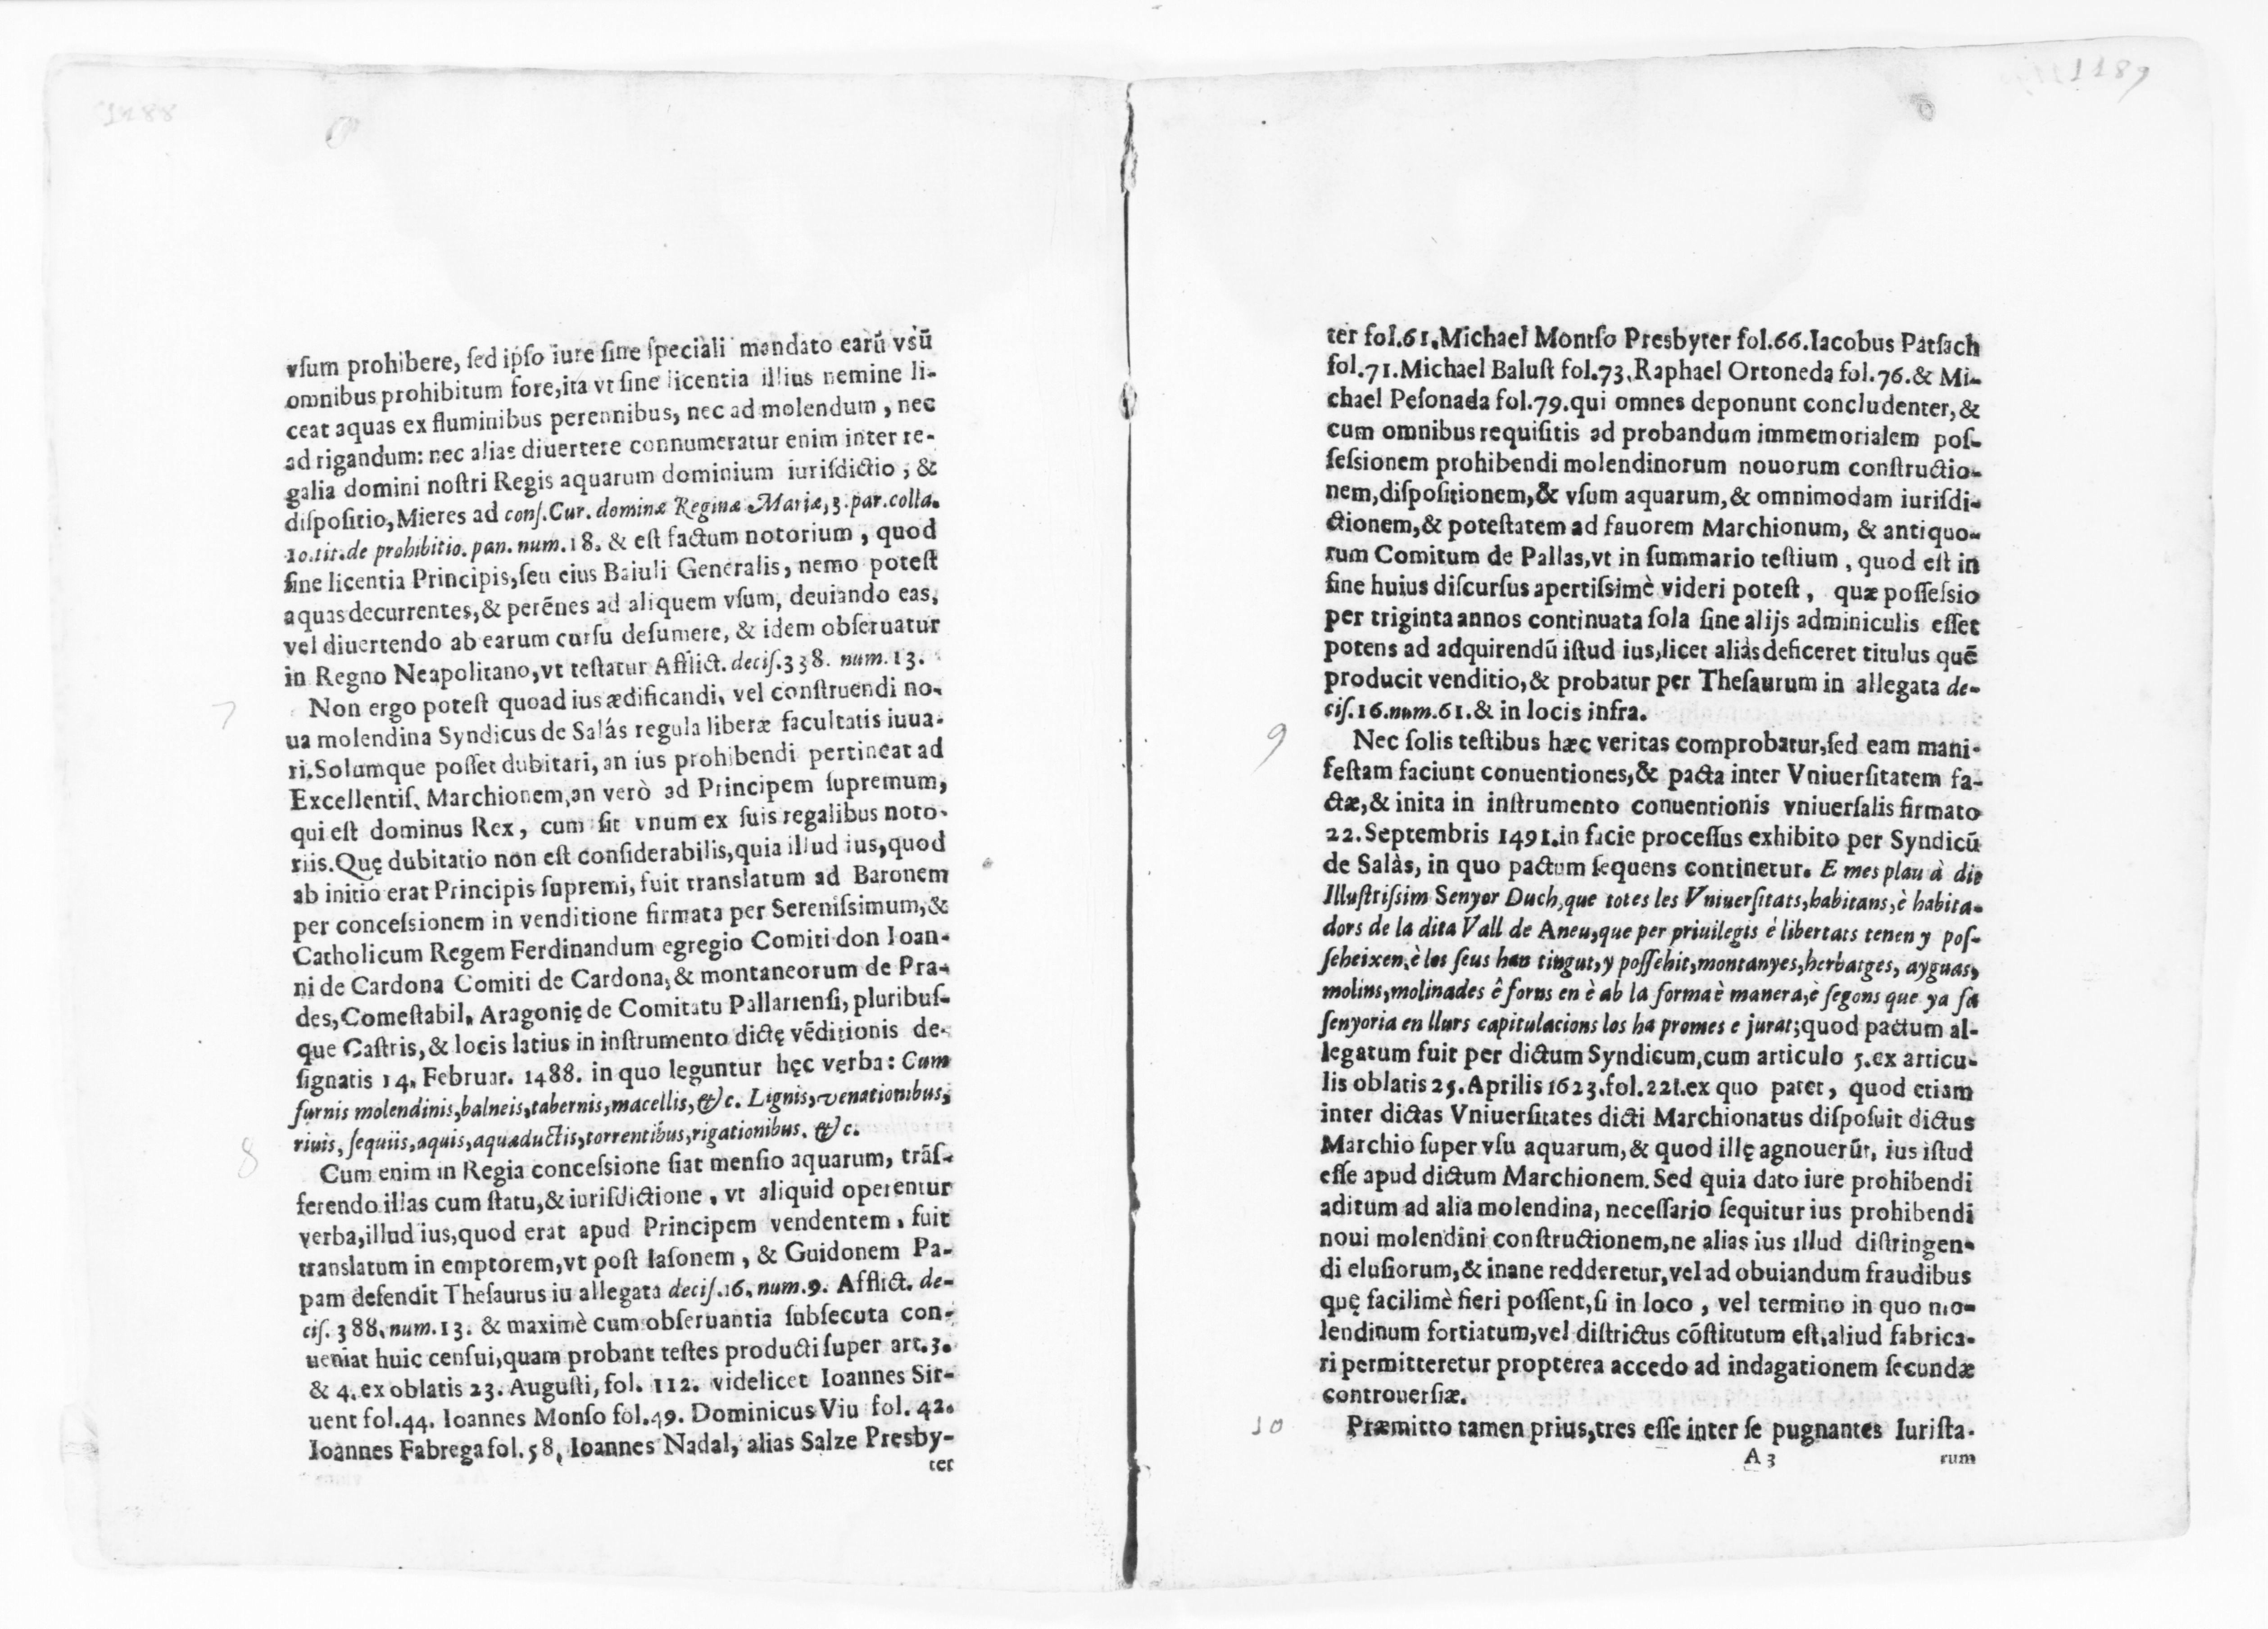 1188
vſum prohibere, ſed ipſo iure ſine ſpeciali mandato earū vsū
omnibus prohibitum fore,ita vt ſine licentia illius nemine li-
ceat aquas ex fluminibus perennibus, nec ad molendum , nec
ad rigandum: nec alias diuertere connumeratur enim inter re-
galia domini noſtri Regis aquarum dominium iuriſdictio , &
diſpoſitio, Mieres ad conſ. Cur. dominæ Reginæ Mariæ, 3. par. colla.
10. tit. de prohibitio. pan. num. 18. & eſt factum notorium , quod
ſine licentia Principis, ſeu eius Baiuli Generalis, nemo poteſt
aquas decurrentes, & perēnes ad aliquem vſum, deuiando eas,
vel diuertendo ab earum curſu deſumere, & idem obſeruatur
in Regno Neapolitano, vt teſtatur Afflict. deciſ. 338. num. 13.
7 Non ergo poteſt quoad ius ædificandi, vel conſtruendi no-
ua molendina Syndicus de Salás regula liberæ facultatis iuua-
ri. Solumque poſſet dubitari, an ius prohibendi pertineat ad
Excellentiſ. Marchionem, an verò ad Principem ſupremum,
qui eſt dominus Rex, cum ſit vnum ex ſuis regalibus noto-
riis. Quę dubitatio non eſt conſiderabilis, quia illud ius, quod
ab initio erat Principis ſupremi, fuit translatum ad Baronem
per conceſsionem in venditione firmata per Sereniſsimum, &
Catholicum Regem Ferdinandum egregio Comiti don Ioan-
ni de Cardona Comiti de Cardona, & montaneorum de Pra-
des, Comeſtabil. Aragonię de Comitatu Pallarienſi, pluribuſ-
que Caſtris, & locis latius in inſtrumento dictę vēditionis de-
ſignatis 14. Februar. 1488. in quo leguntur hęc verba: Cum
furnis molendinis, balneis, tabernis, macellis, &c. Lignis, venationibus,
riuis, ſequiis, aquis, aquæductis, torrentibus, rigationibus, &c.
8 Cum enim in Regia conceſsione fiat menſio aquarum, trāſ-
ferendo illas cum ſtatu, & iuriſdictione , vt aliquid operentur
verba, illud ius, quod erat apud Principem vendentem , fuit
translatum in emptorem, vt poſt Iaſonem , & Guidonem Pa-
pam defendit Theſaurus iu allegata deciſ. 16. num. 9. Afflict. de-
ciſ. 388. num. 13. & maximè cum obſeruantia ſubſecuta con-
ueniat huic cenſui, quam probant teſtes producti ſuper art. 3.
& 4. ex oblatis 23. Auguſti, fol. 112. videlicet Ioannes Sir-
uent fol. 44. Ioannes Monſo fol. 49. Dominicus Viu fol. 42.
Ioannes Fabrega fol. 58, Ioannes Nadal, alias Salze Presby-
ter
1189
ter fol. 61. Michael Montſo Presbyter fol. 66. Iacobus Patſach
fol. 71. Michael Baluſt fol. 73. Raphael Ortoneda fol. 76. & Mi-
chael Peſonada fol. 79. qui omnes deponunt concludenter, &
cum omnibus requiſitis ad probandum immemorialem poſ-
ſeſsionem prohibendi molendinorum nouorum conſtructio-
nem, diſpoſitionem, & vſum aquarum, & omnimodam iuriſdi-
ctionem, & poteſtatem ad fauorem Marchionum, & antiquo-
rum Comitum de Pallas, vt in ſummario teſtium , quod eſt in
fine huius diſcurſus apertiſsimè videri poteſt , quæ poſſeſsio
per triginta annos continuata ſola ſine alijs adminiculis eſſet
potens ad adquirendū iſtud ius, licet aliàs deficeret titulus quē
producit venditio, & probatur per Theſaurum in allegata de-
ciſ. 16. num. 61. & in locis infra.
9 Nec ſolis teſtibus hæc veritas comprobatur, ſed eam mani-
feſtam faciunt conuentiones, & pacta inter Vniuerſitatem fa-
ctæ, & inita in inſtrumento conuentionis vniuerſalis firmato
22. Septembris 1491. in facie proceſſus exhibito per Syndicū
de Salàs, in quo pactum ſequens continetur. E mes plau à dit
Illuſtriſsim Senyor Duch, que totes les Vniuerſitats, habitans, è habita-
dors de la dita Vall de Aneu, que per priuilegis è libertats tenen y poſ-
ſeheixen, è los ſeus han tingut, y poſſehit, montanyes, herbatges, ayguas,
molins, molinades ê forns en è ab la forma è manera, è ſegons que ya ſa
ſenyoria en llurs capitulacions los ha promes e jurat; quod pactum al-
legatum fuit per dictum Syndicum, cum articulo 5. ex articu-
lis oblatis 25. Aprilis 1623. fol. 221. ex quo patet, quod etiam
inter dictas Vniuerſitates dicti Marchionatus diſpoſuit dictus
Marchio ſuper vſu aquarum, & quod illę agnouerūt, ius iſtud
eſſe apud dictum Marchionem. Sed quia dato iure prohibendi
aditum ad alia molendina, neceſſario ſequitur ius prohibendi
noui molendini conſtructionem, ne alias ius illud diſtringen-
di eluſiorum, & inane redderetur, vel ad obuiandum fraudibus
quę facilimè fieri poſſent, ſi in loco , vel termino in quo mo-
lendinum fortiatum, vel diſtrictus cōſtitutum eſt, aliud fabrica-
ri permitteretur propterea accedo ad indagationem ſecundæ
controuerſiæ.
10 Præmitto tamen prius, tres eſſe inter ſe pugnantes Iuriſta-
A 3 rum